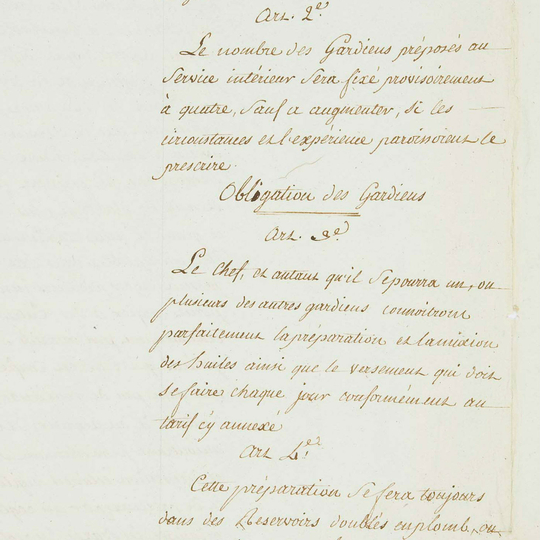 Art. 2.e
Le nombre des Gardiens préposés au
Service intérieur sera fixé provisoirement
à quatre, sauf a augmenter, si les
circonstances et l'expérience paroissoient le
prescrire.
Obligation des Gardiens
Art. 3.e
Le chef, et autant qu'il se pourra un, ou
plusieurs des autres gardiens connoitront
parfaitement la préparation et la mixion
des huiles ainsi que le versement qui doit
se faire chaque jour conformément au
tarif cy annexé
Art 4.e
Cette préparation se fera toujours
dans des Reservoirs doublés en plomb, ou